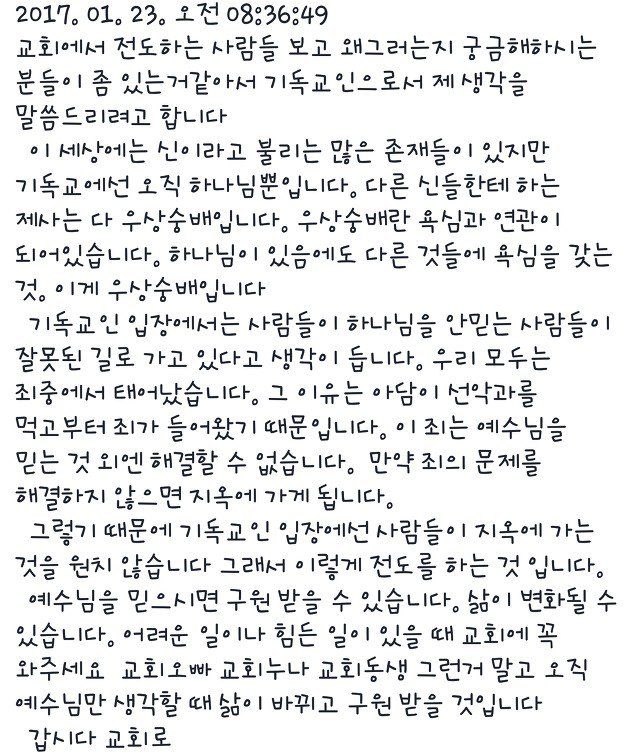 2017. 01. 23. 오전 08:36:49
교회에서 전도하는 사람들 보고 왜그러는지 궁금해하시는
분들이 좀 있는거같아서 기독교인으로서 제 생각을
말씀드리려고 합니다
이 세상에는 신이라고 불리는 많은 존재들이 있지만
기독교에선 오직 하나님뿐입니다. 다른 신들한테 하는
제사는 다 우상숭배입니다. 우상숭배란 욕심과 연관이
되어있습니다. 하나님이 있음에도 다른 것들에 욕심을 갖는
것. 이게 우상숭배입니다
기독교인 입장에서는 사람들이 하나님을 안믿는 사람들이
잘못된 길로 가고 있다고 생각이 듭니다. 우리 모두는
죄중에서 태어났습니다. 그 이유는 아담이 선악과를
먹고부터 죄가 들어왔기 때문입니다. 이 죄는 예수님을
믿는 것 외엔 해결할 수 없습니다. 만약 죄의 문제를
해결하지 않으면 지옥에 가게 됩니다.
그렇기 때문에 기독교인 입장에선 사람들이 지옥에 가는
것을 원치 않습니다 그래서 이렇게 전도를 하는 것 입니다.
예수님을 믿으시면 구원 받을 수 있습니다. 삶이 변화될 수
있습니다. 어려운 일이나 힘든 일이 있을 때 교회에 꼭
와주세요 교회오빠 교회누나 교회동생 그런거 말고 오직
예수님만 생각할 때 삶이 바뀌고 구원 받을 것입니다
갑시다 교회로